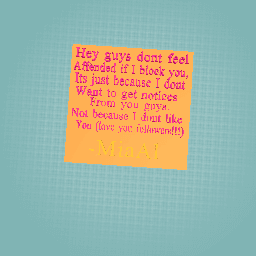 Hey guys dont feel
Affended if I block you,
Its just because I dont
Want to get notices
From you guys.
Not because I dont like
You (love you followers!!!)